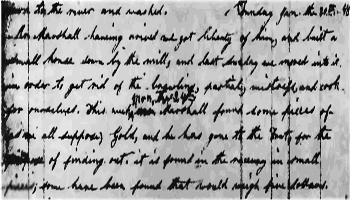 down to the river and washed. Sunday Jan. the 30th 48
Marshall having arived we got liberty of him, and built a
small house down by the mill, and last sunday we moved into it
in order to get rid of the brawling, partial, mistress, and cook
for ourselves. This week Mr Marshall found some pieces of
we all suppose) Gold, and he has gone to the Fort, for the
purpose of finding out. it is found in the raceway in small
pieces; some have been found that would weigh five dollars.